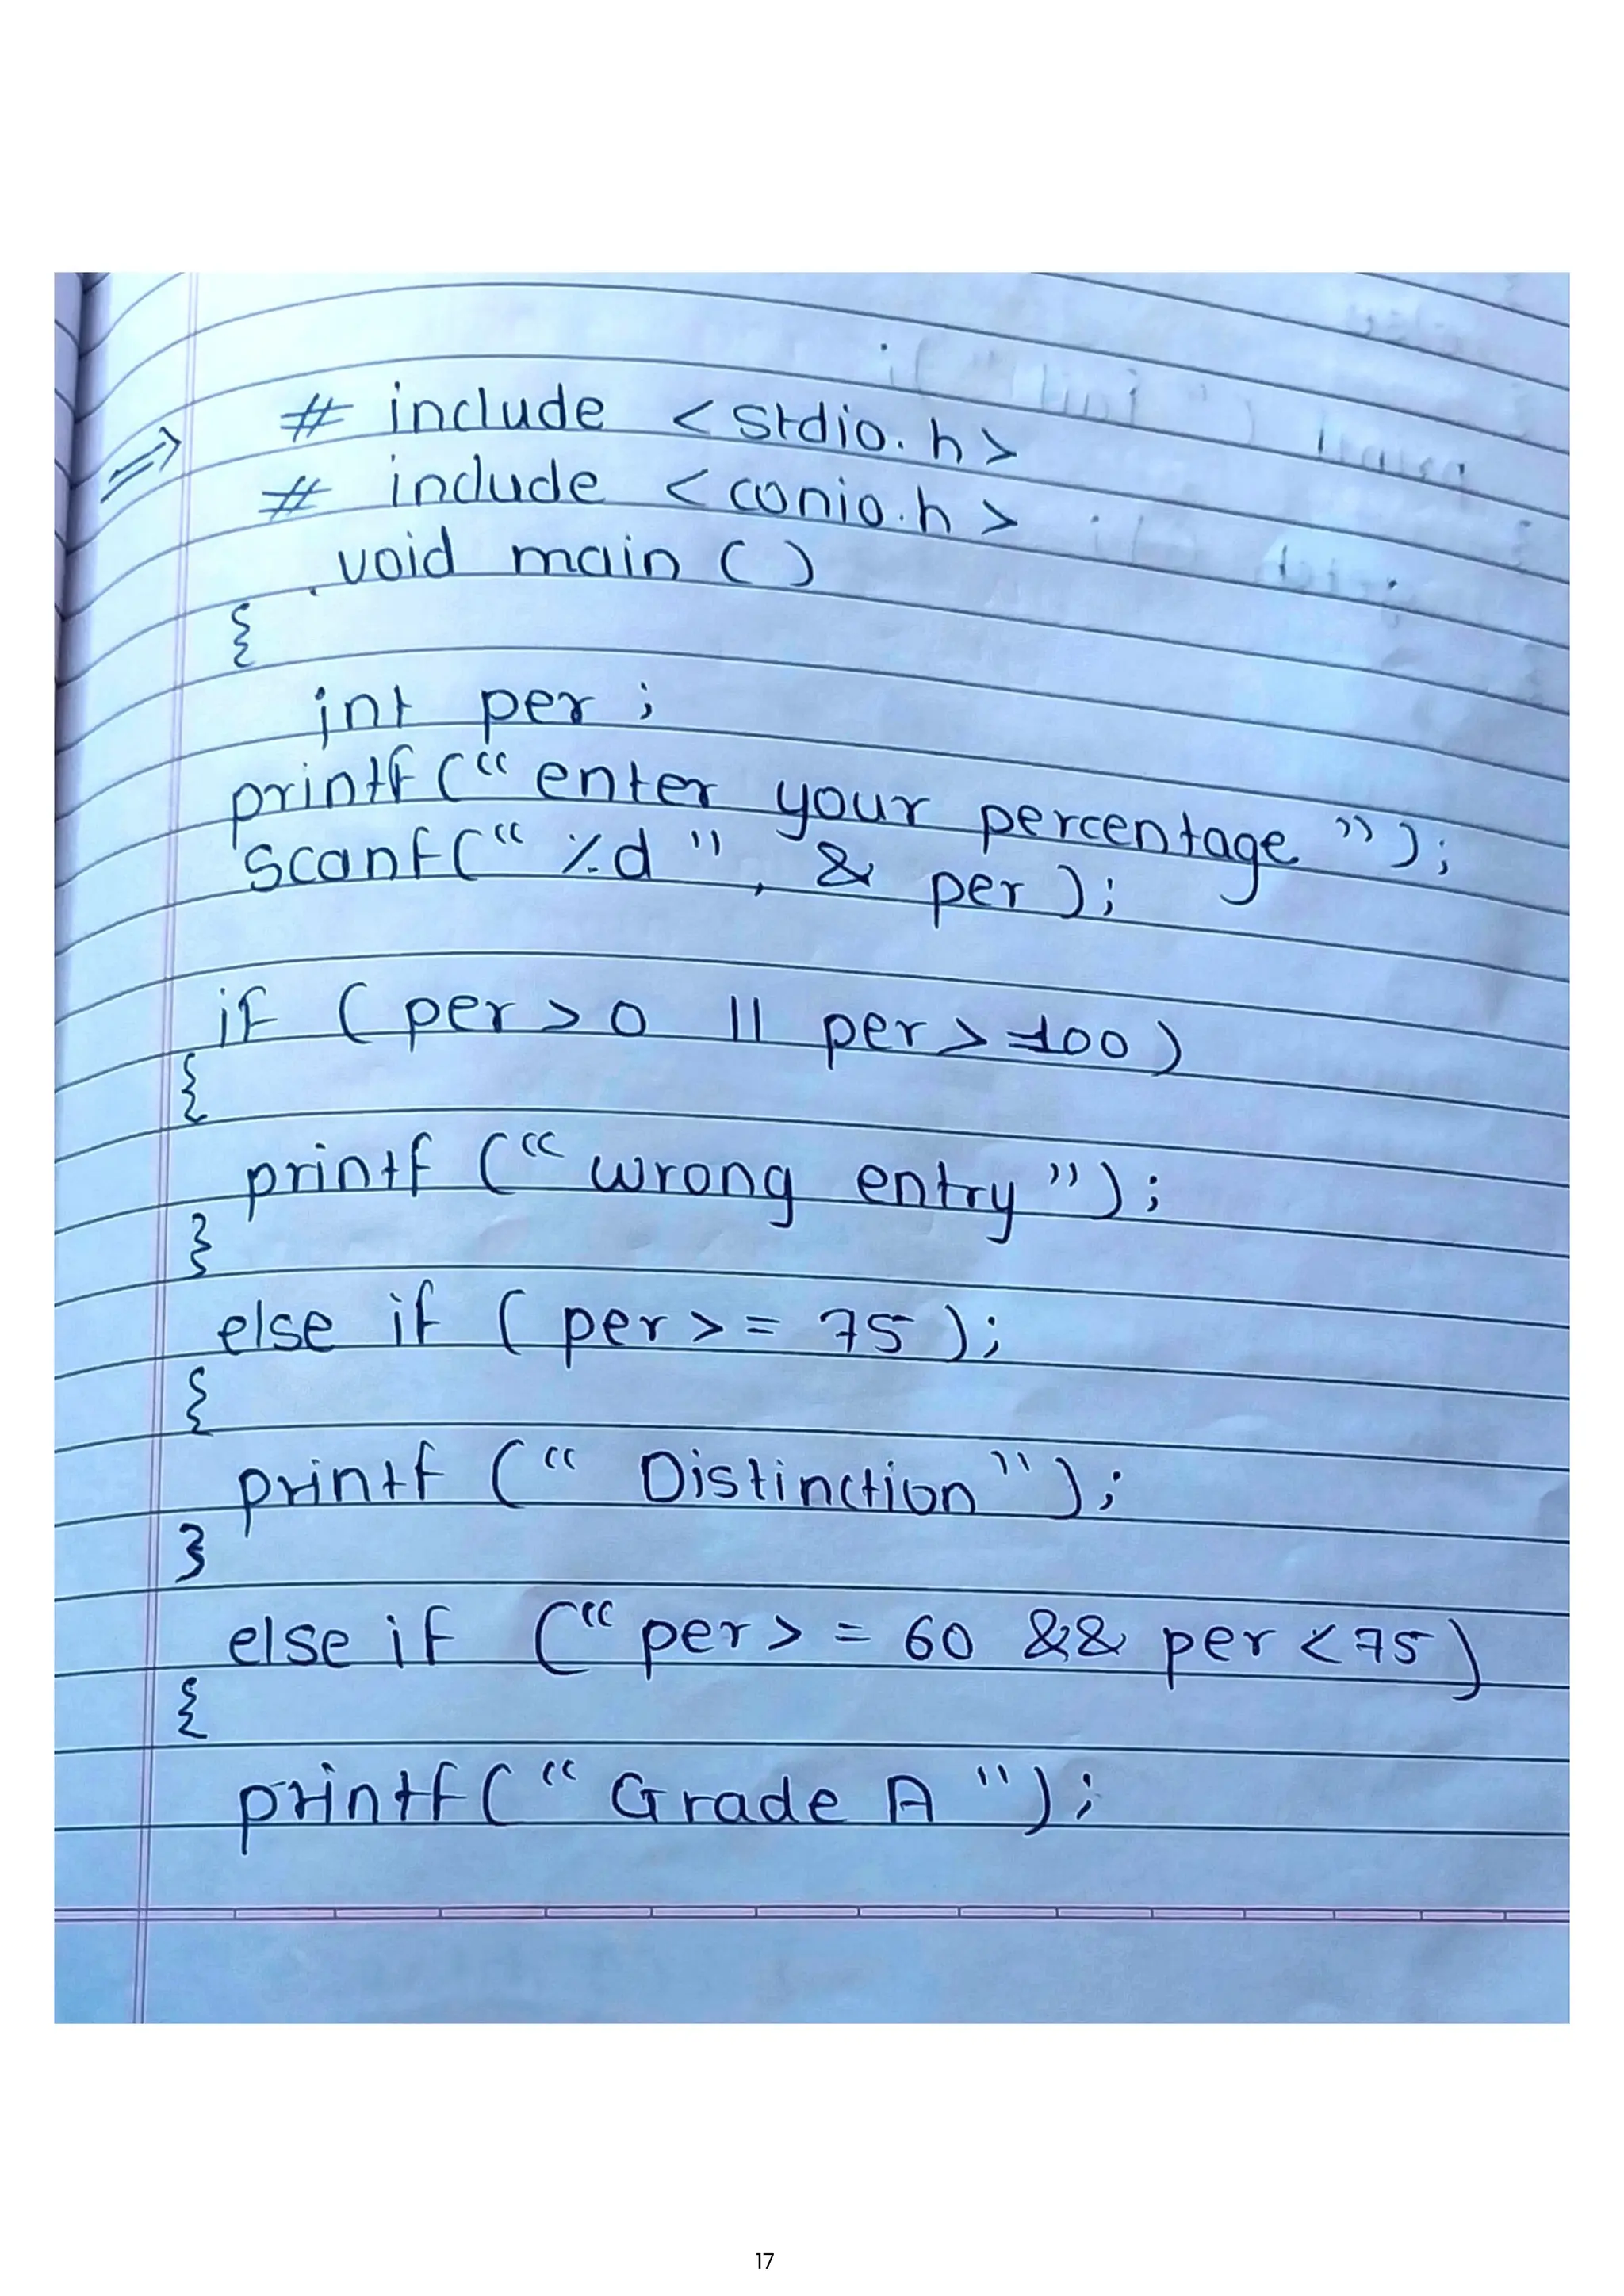 # include <stdio.h>
# include <conio.h>
void main ( )
{
int per ;
printf (“ enter your percentage ”) ;
scanf (“ %d ” , & per ) ;
if ( per > 0 || per > 100 )
{
printf (“ wrong entry ”) ;
}
else if ( per > = 75 ) ;
{
printf (“ Distinction ”) ;
}
else if (“ per > = 60 && per < 75 )
{
printf (“ Grade A ”) ;
17